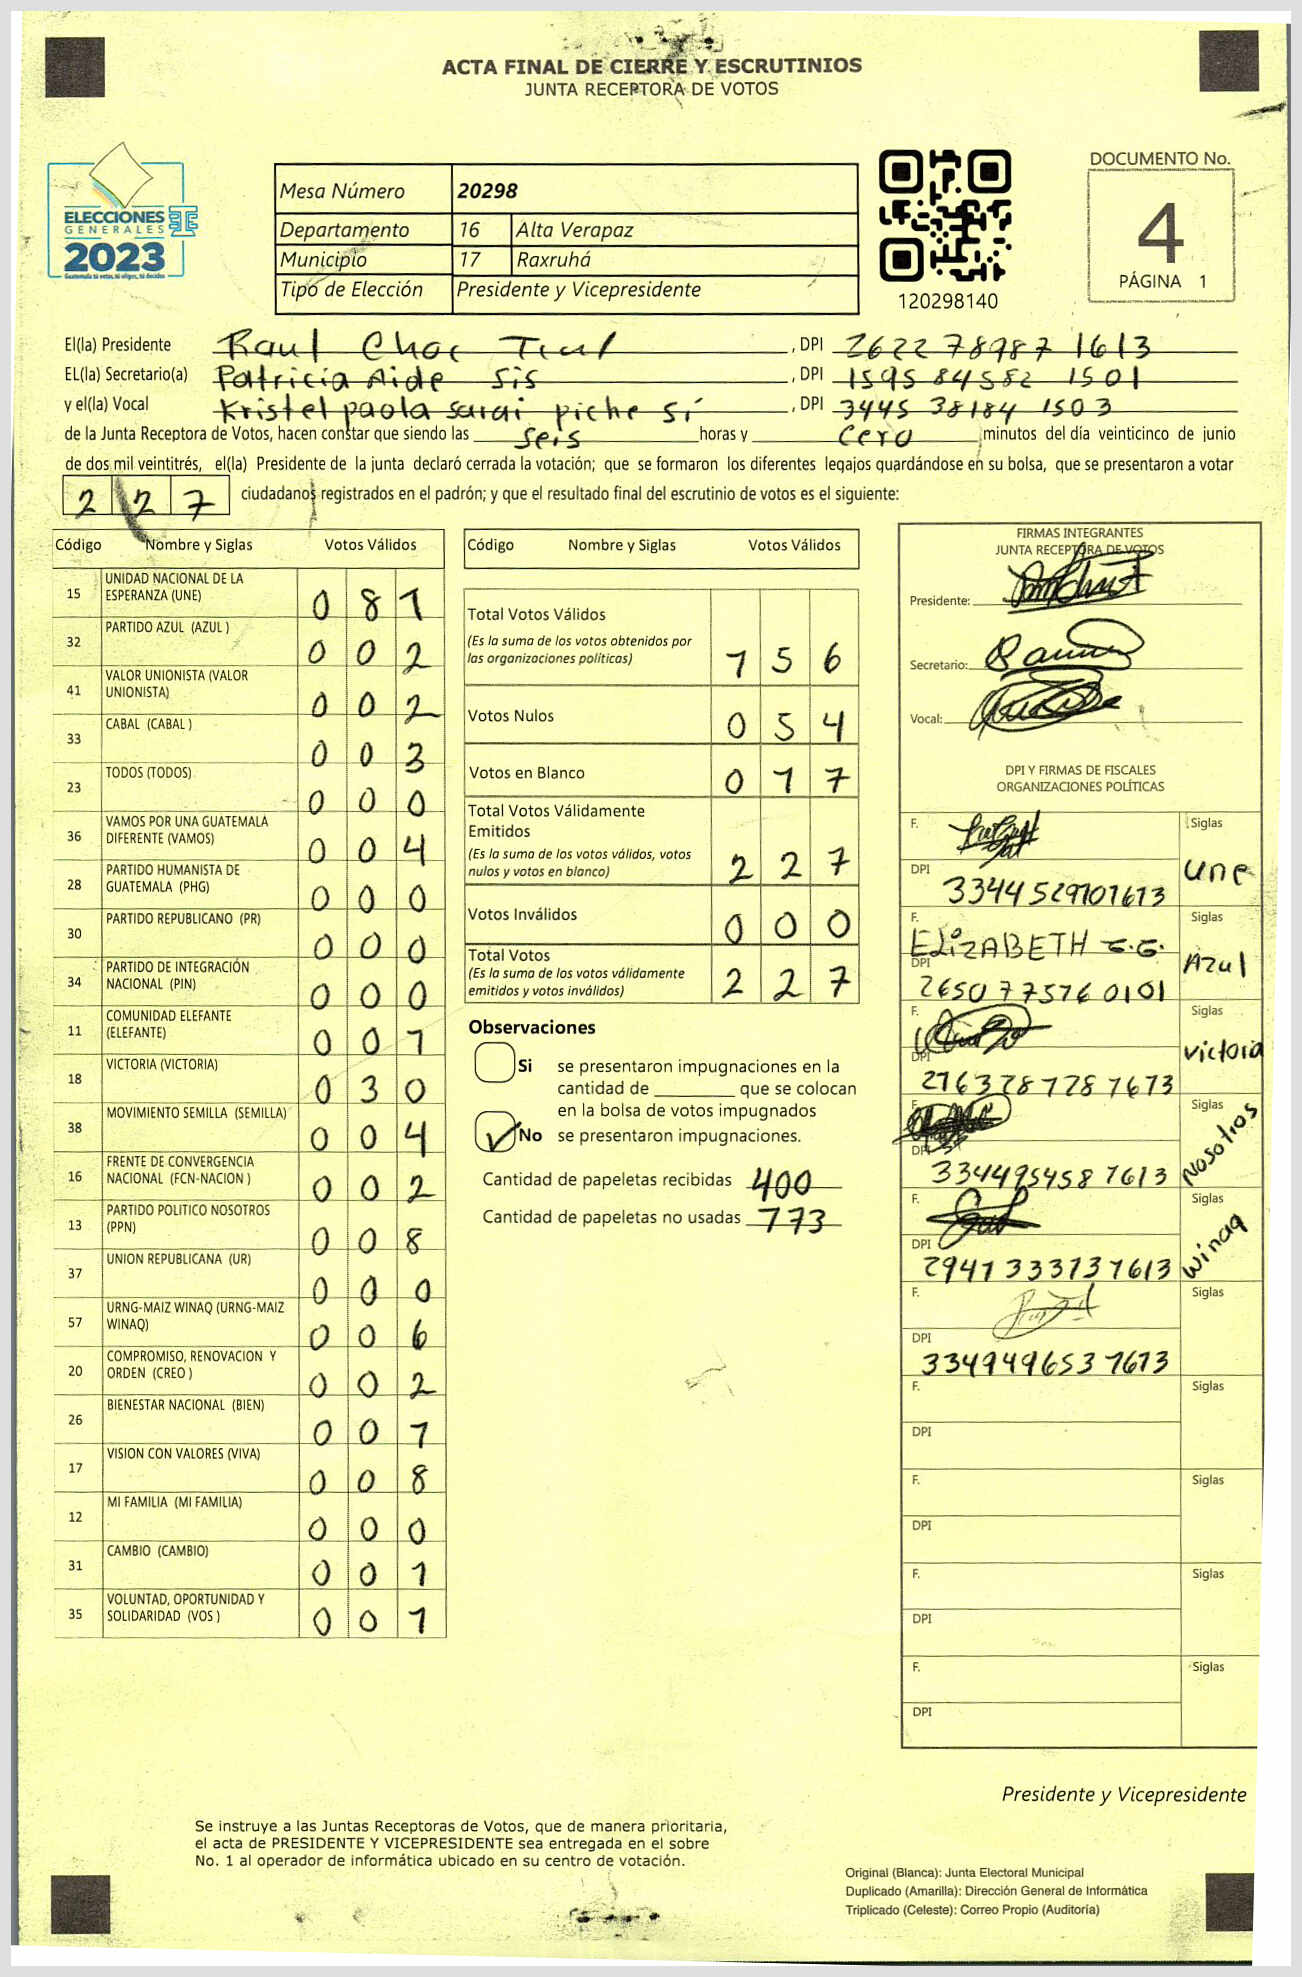 ACTA FINAL DE CIERRE Y ESCRUTINIOS
JUNTA RECEPTORA DE VOTOS
ELECCIONES
GENERALES
2023
Guatemala tú votas, tú eliges, tú decides
Mesa Número 20298
Departamento 16 Alta Verapaz
Municipio 17 Raxruhá
Tipo de Elección Presidente y Vicepresidente
120298140
DOCUMENTO No.
4
PÁGINA 1
El(la) Presidente Raul Choc Tiul, DPI 2622 78987 1613
EL(la) Secretario(a) Patricia Aide Sis, DPI 1595 84582 1501
y el(la) Vocal Kristel paola sarai piche Sí, DPI 3445 38184 1503
de la Junta Receptora de Votos, hacen constar que siendo las seis horas y cero minutos del día veinticinco de junio
de dos mil veintitrés, el(la) Presidente de la junta declaró cerrada la votación; que se formaron los diferentes legajos guardándose en su bolsa, que se presentaron a votar
227 ciudadanos registrados en el padrón; y que el resultado final del escrutinio de votos es el siguiente:
Código Nombre y Siglas Votos Válidos
15 UNIDAD NACIONAL DE LA
ESPERANZA (UNE) 081
32 PARTIDO AZUL (AZUL ) 002
41 VALOR UNIONISTA (VALOR
UNIONISTA) 002
33 CABAL (CABAL ) 003
23 TODOS (TODOS) 000
36 VAMOS POR UNA GUATEMALA
DIFERENTE (VAMOS) 004
28 PARTIDO HUMANISTA DE
GUATEMALA (PHG) 000
30 PARTIDO REPUBLICANO (PR) 000
34 PARTIDO DE INTEGRACIÓN
NACIONAL (PIN) 000
11 COMUNIDAD ELEFANTE
(ELEFANTE) 001
18 VICTORIA (VICTORIA) 030
38 MOVIMIENTO SEMILLA (SEMILLA) 004
16 FRENTE DE CONVERGENCIA
NACIONAL (FCN-NACION ) 002
13 PARTIDO POLITICO NOSOTROS
(PPN) 008
37 UNION REPUBLICANA (UR) 000
57 URNG-MAIZ WINAQ (URNG-MAIZ
WINAQ) 006
20 COMPROMISO, RENOVACION Y
ORDEN (CREO ) 002
26 BIENESTAR NACIONAL (BIEN) 001
17 VISION CON VALORES (VIVA) 008
12 MI FAMILIA (MI FAMILIA) 000
31 CAMBIO (CAMBIO) 001
35 VOLUNTAD, OPORTUNIDAD Y
SOLIDARIDAD (VOS ) 001
Código Nombre y Siglas Votos Válidos
Total Votos Válidos
(Es la suma de los votos obtenidos por
las organizaciones políticas) 156
Votos Nulos 054
Votos en Blanco 017
Total Votos Válidamente
Emitidos
(Es la suma de los votos válidos, votos
nulos y votos en blanco) 227
Votos Inválidos 000
Total Votos
(Es la suma de los votos válidamente
emitidos y votos inválidos) 227
Observaciones
Si se presentaron impugnaciones en la
cantidad de que se colocan
en la bolsa de votos impugnados
No se presentaron impugnaciones.
Cantidad de papeletas recibidas 400
Cantidad de papeletas no usadas 173
FIRMAS INTEGRANTES
JUNTA RECEPTORA DE VOTOS
Presidente:
Secretario:
Vocal:
DPI Y FIRMAS DE FISCALES
ORGANIZACIONES POLÍTICAS
F. Siglas
DPI 3344529101613 Une
F. ELIZABETH G.G. Siglas
DPI 2650 77576 0101 Azul
F. Siglas
DPI victoria
F. Siglas
DPI 334495458 1613 Nosotros
F. Siglas
DPI 2941 33313 1613 winaq
F. Siglas
DPI 334949653 1613
F. Siglas
DPI
F. Siglas
DPI
F. Siglas
DPI
F. Siglas
DPI
Presidente y Vicepresidente
Se instruye a las Juntas Receptoras de Votos, que de manera prioritaria,
el acta de PRESIDENTE Y VICEPRESIDENTE sea entregada en el sobre
No. 1 al operador de informática ubicado en su centro de votación.
Original (Blanca): Junta Electoral Municipal
Duplicado (Amarilla): Dirección General de Informática
Triplicado (Celeste): Correo Propio (Auditoría)